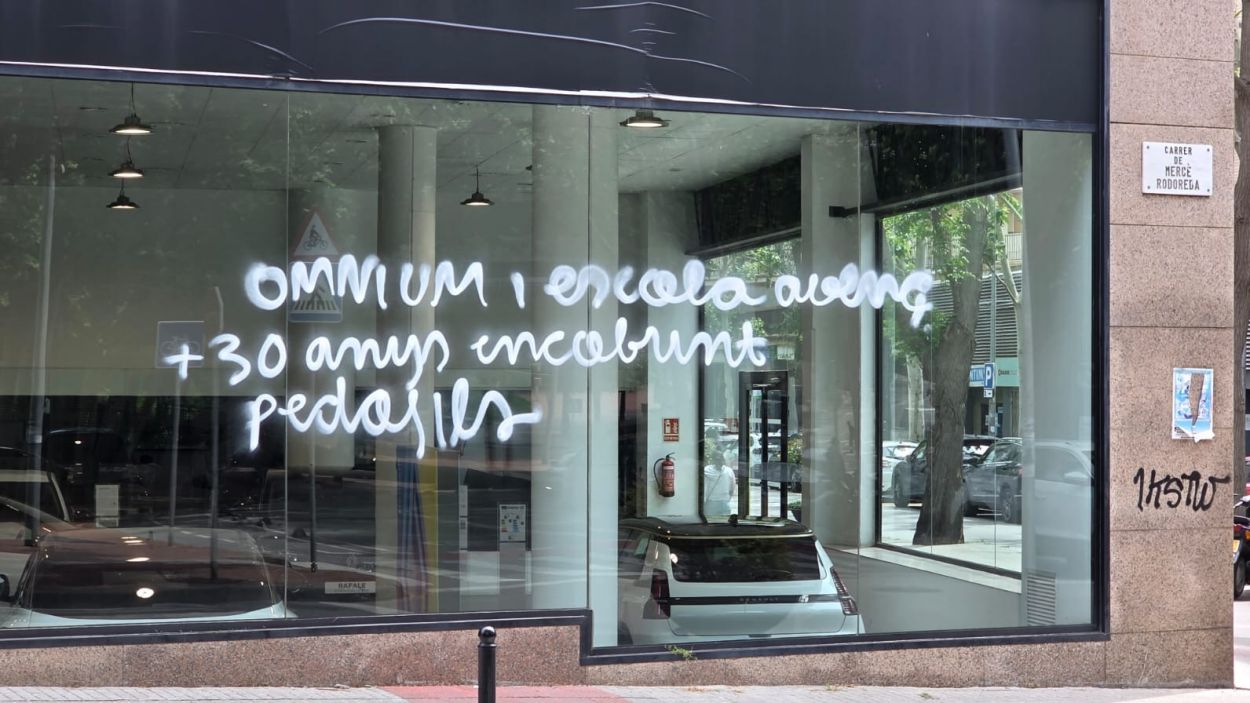 OMNIUM i escola avenç
+30 anys encobrint
pedofils
CARRER
DE
MERCÈ
RODOREDA
P
RAFALE
RENAULT